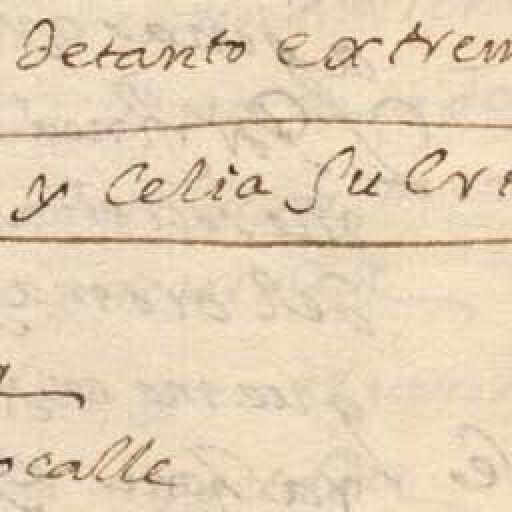 de tanto extrem
y Celia su Cri
a
ocalle